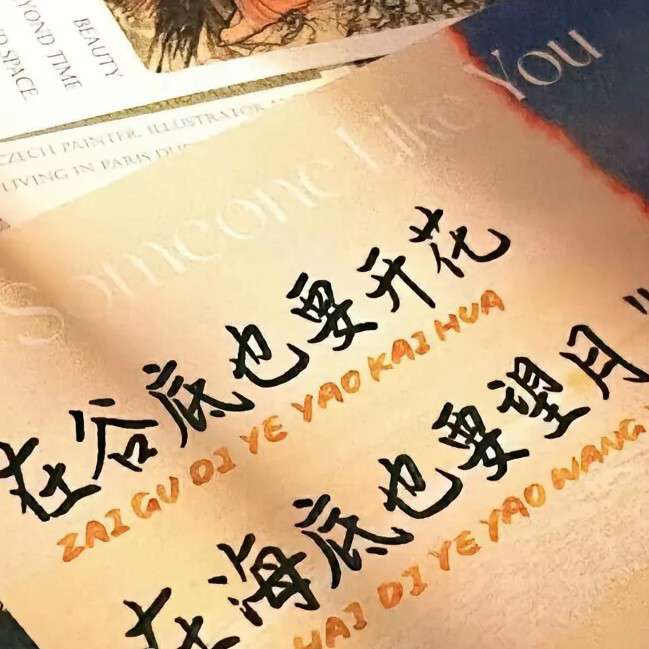 BEAUTY
YOND TIME
D SPACE
CZECH PAINTER, ILLUSTRATOR
LIVING IN PARIS
Someone Like You
在谷底也要开花
ZAI GU DI YE YAO KAI HUA
在海底也要望月"
HAI DI YE YAO WANG